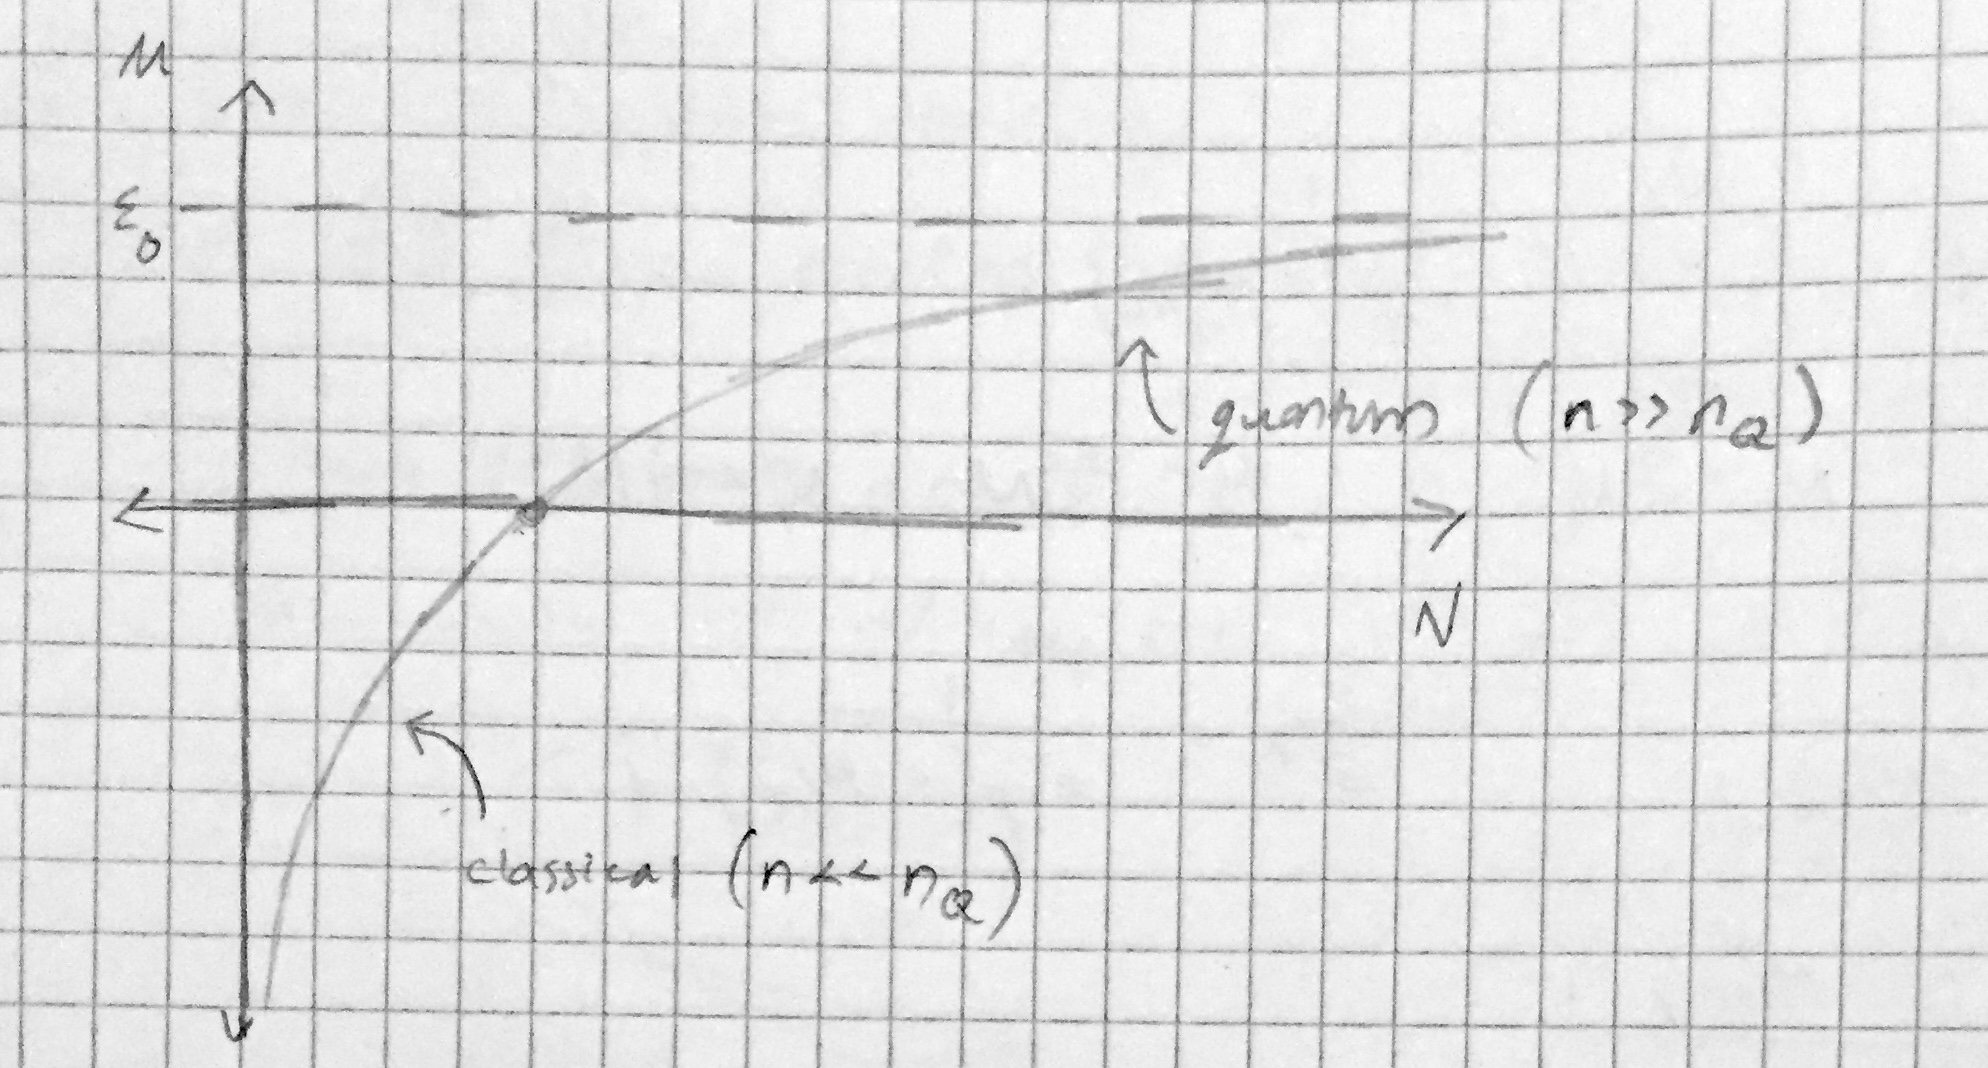 μ
ε₀
quantum (n >> n_Q)
N
classical (n << n_Q)